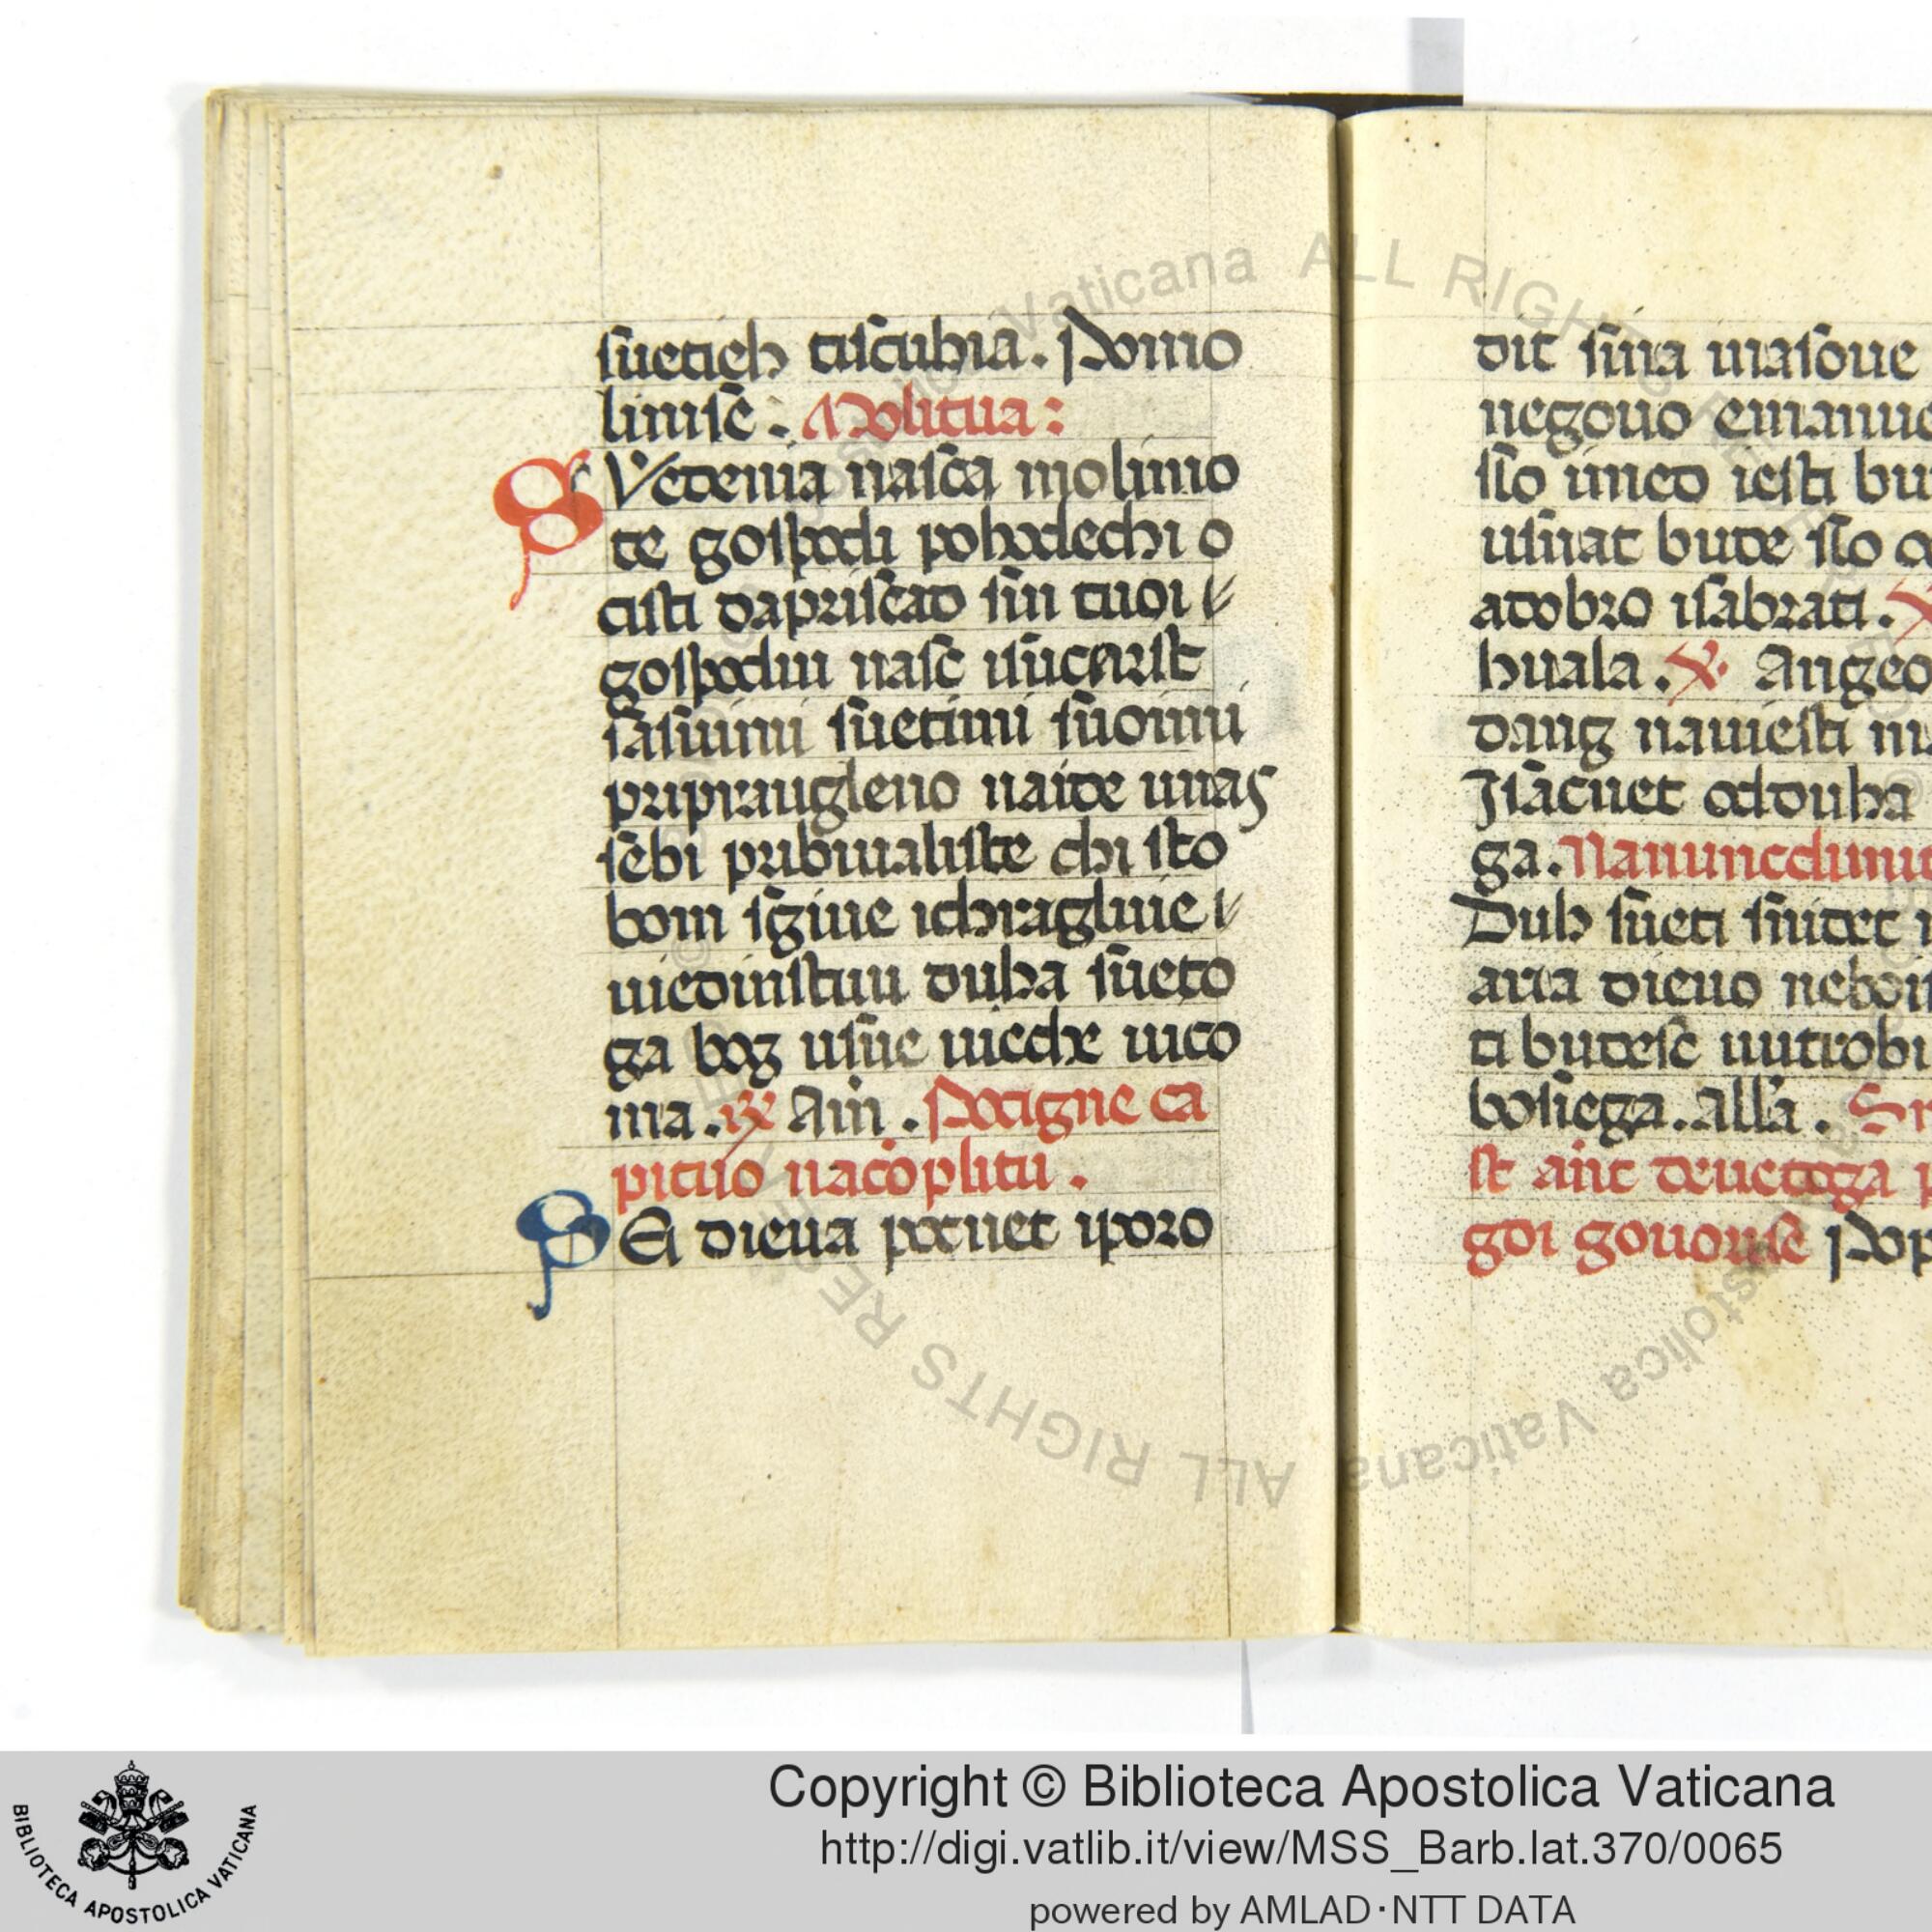 sueticħ tiscubia. Pomo
limisc. Molitua:
SVetenia nasca molimo
te gospodi pohodechi o
cisti dapriscad sin tuoi
gospodin nasc isucarist
sasuimi suetimi suoimi
pripraugleno naide unas
sebi pribiualiste chi sto
bom sgiue ichragliuie
uiedinstuu duha sueto
ga bog usue uieche uico
ma. ℟ Am̃. Potigne ca
pituo nacoplitu.
SEi dieua pocnet iporo
dit sina masoue
negouo emanue
slo imeo iesti bu
usiuat bude slo o
adobro isabrati.
huala. ℣. Angeo
dang nauiesti m
Isacnet odduha
ga. Nanuncdimit
Duh sueti snidet
aria dieuo neboi
ti budesc uutrobi
bosiega. all'a.
st ant deuetoga
goi gouorise Pop
Vaticana ALL RIGHTS RE
ALL RIGHTS RE
ostolica Vaticana
BIBLIOTECA APOSTOLICA VATICANA
Copyright © Biblioteca Apostolica Vaticana
http://digi.vatlib.it/view/MSS_Barb.lat.370/0065
powered by AMLAD·NTT DATA